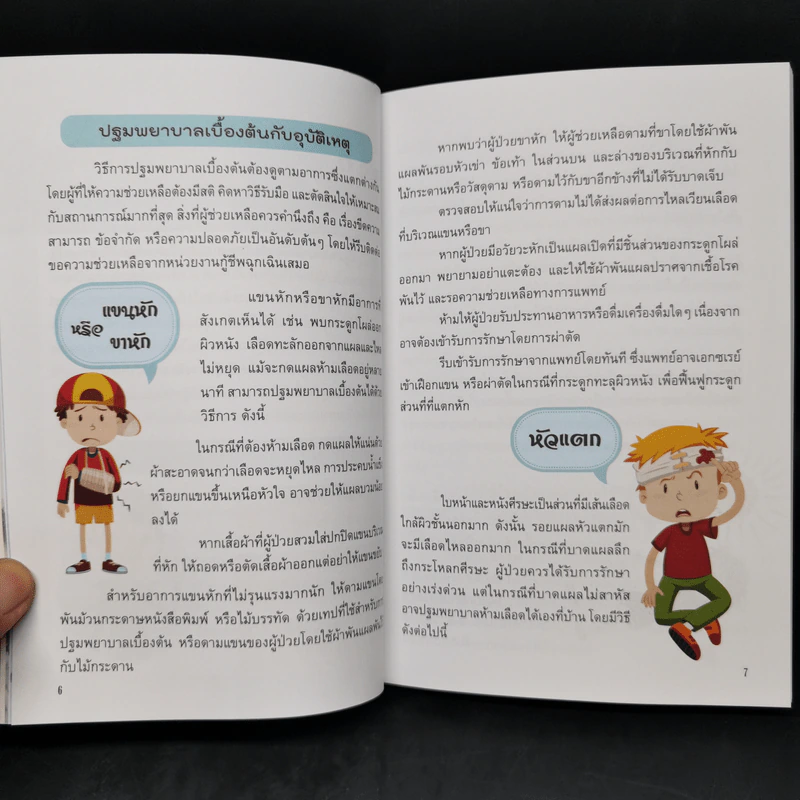 ปฐมพยาบาลเบื้องต้นกับอุบัติเหตุ
วิธีการปฐมพยาบาลเบื้องต้นต้องดูตามอาการซึ่งแตกต่างกัน
โดยผู้ที่ให้ความช่วยเหลือต้องมีสติ คิดหาวิธีรับมือ และตัดสินใจให้เหมาะสม
กับสถานการณ์มากที่สุด สิ่งที่ผู้ช่วยเหลือควรคำนึงถึง คือ เรื่องขีดความ
สามารถ ข้อจำกัด หรือความปลอดภัยเป็นอันดับต้นๆ โดยให้รีบติดต่อ
ขอความช่วยเหลือจากหน่วยงานกู้ชีพฉุกเฉินเสมอ
แขนหัก
หรือ
ขาหัก
แขนหักหรือขาหักมีอาการที่
สังเกตเห็นได้ เช่น พบกระดูกโผล่ออก
ผิวหนัง เลือดทะลักออกจากแผลและไหล
ไม่หยุด แม้จะกดแผลห้ามเลือดอยู่หลาย
นาที สามารถปฐมพยาบาลเบื้องต้นได้ด้วย
วิธีการ ดังนี้
ในกรณีที่ต้องห้ามเลือด กดแผลให้แน่นด้วย
ผ้าสะอาดจนกว่าเลือดจะหยุดไหล การประคบน้ำแข็ง
หรือยกแขนขึ้นเหนือหัวใจ อาจช่วยให้แผลบวมน้อย
ลงได้
หากเสื้อผ้าที่ผู้ป่วยสวมใส่ปกปิดแขนบริเวณ
ที่หัก ให้ถอดหรือตัดเสื้อผ้าออกแต่อย่าให้แขนขยับ
สำหรับอาการแขนหักที่ไม่รุนแรงมากนัก ให้ดามแขนโดย
พันม้วนกระดาษหนังสือพิมพ์ หรือไม้บรรทัด ด้วยเทปที่ใช้สำหรับการ
ปฐมพยาบาลเบื้องต้น หรือดามแขนของผู้ป่วยโดยใช้ผ้าพันแผลพันไว้
กับไม้กระดาน
6
หากพบว่าผู้ป่วยขาหัก ให้ผู้ช่วยเหลือดามที่ขาโดยใช้ผ้าพัน
แผลพันรอบหัวเข่า ข้อเท้า ในส่วนบน และล่างของบริเวณที่หักกับ
ไม้กระดานหรือวัสดุดาม หรือดามไว้กับขาอีกข้างที่ไม่ได้รับบาดเจ็บ
ตรวจสอบให้แน่ใจว่าการดามไม่ได้ส่งผลต่อการไหลเวียนเลือด
ที่บริเวณแขนหรือขา
หากผู้ป่วยมีอวัยวะหักเป็นแผลเปิดที่มีชิ้นส่วนของกระดูกโผล่
ออกมา พยายามอย่าแตะต้อง และให้ใช้ผ้าพันแผลปราศจากเชื้อโรค
พันไว้ และรอความช่วยเหลือทางการแพทย์
ห้ามให้ผู้ป่วยรับประทานอาหารหรือดื่มเครื่องดื่มใดๆ เนื่องจาก
อาจต้องเข้ารับการรักษาโดยการผ่าตัด
รีบเข้ารับการรักษาจากแพทย์โดยทันที ซึ่งแพทย์อาจเอกซเรย์
เข้าเฝือกแขน หรือผ่าตัดในกรณีที่กระดูกทะลุผิวหนัง เพื่อฟื้นฟูกระดูก
ส่วนที่ที่แตกหัก
หัวแตก
ใบหน้าและหนังศีรษะเป็นส่วนที่มีเส้นเลือด
ใกล้ผิวชั้นนอกมาก ดังนั้น รอยแผลหัวแตกมัก
จะมีเลือดไหลออกมาก ในกรณีที่บาดแผลลึก
ถึงกระโหลกศีรษะ ผู้ป่วยควรได้รับการรักษา
อย่างเร่งด่วน แต่ในกรณีที่บาดแผลไม่สาหัส
อาจปฐมพยาบาลห้ามเลือดได้เองที่บ้าน โดยมีวิธี
ดังต่อไปนี้
7